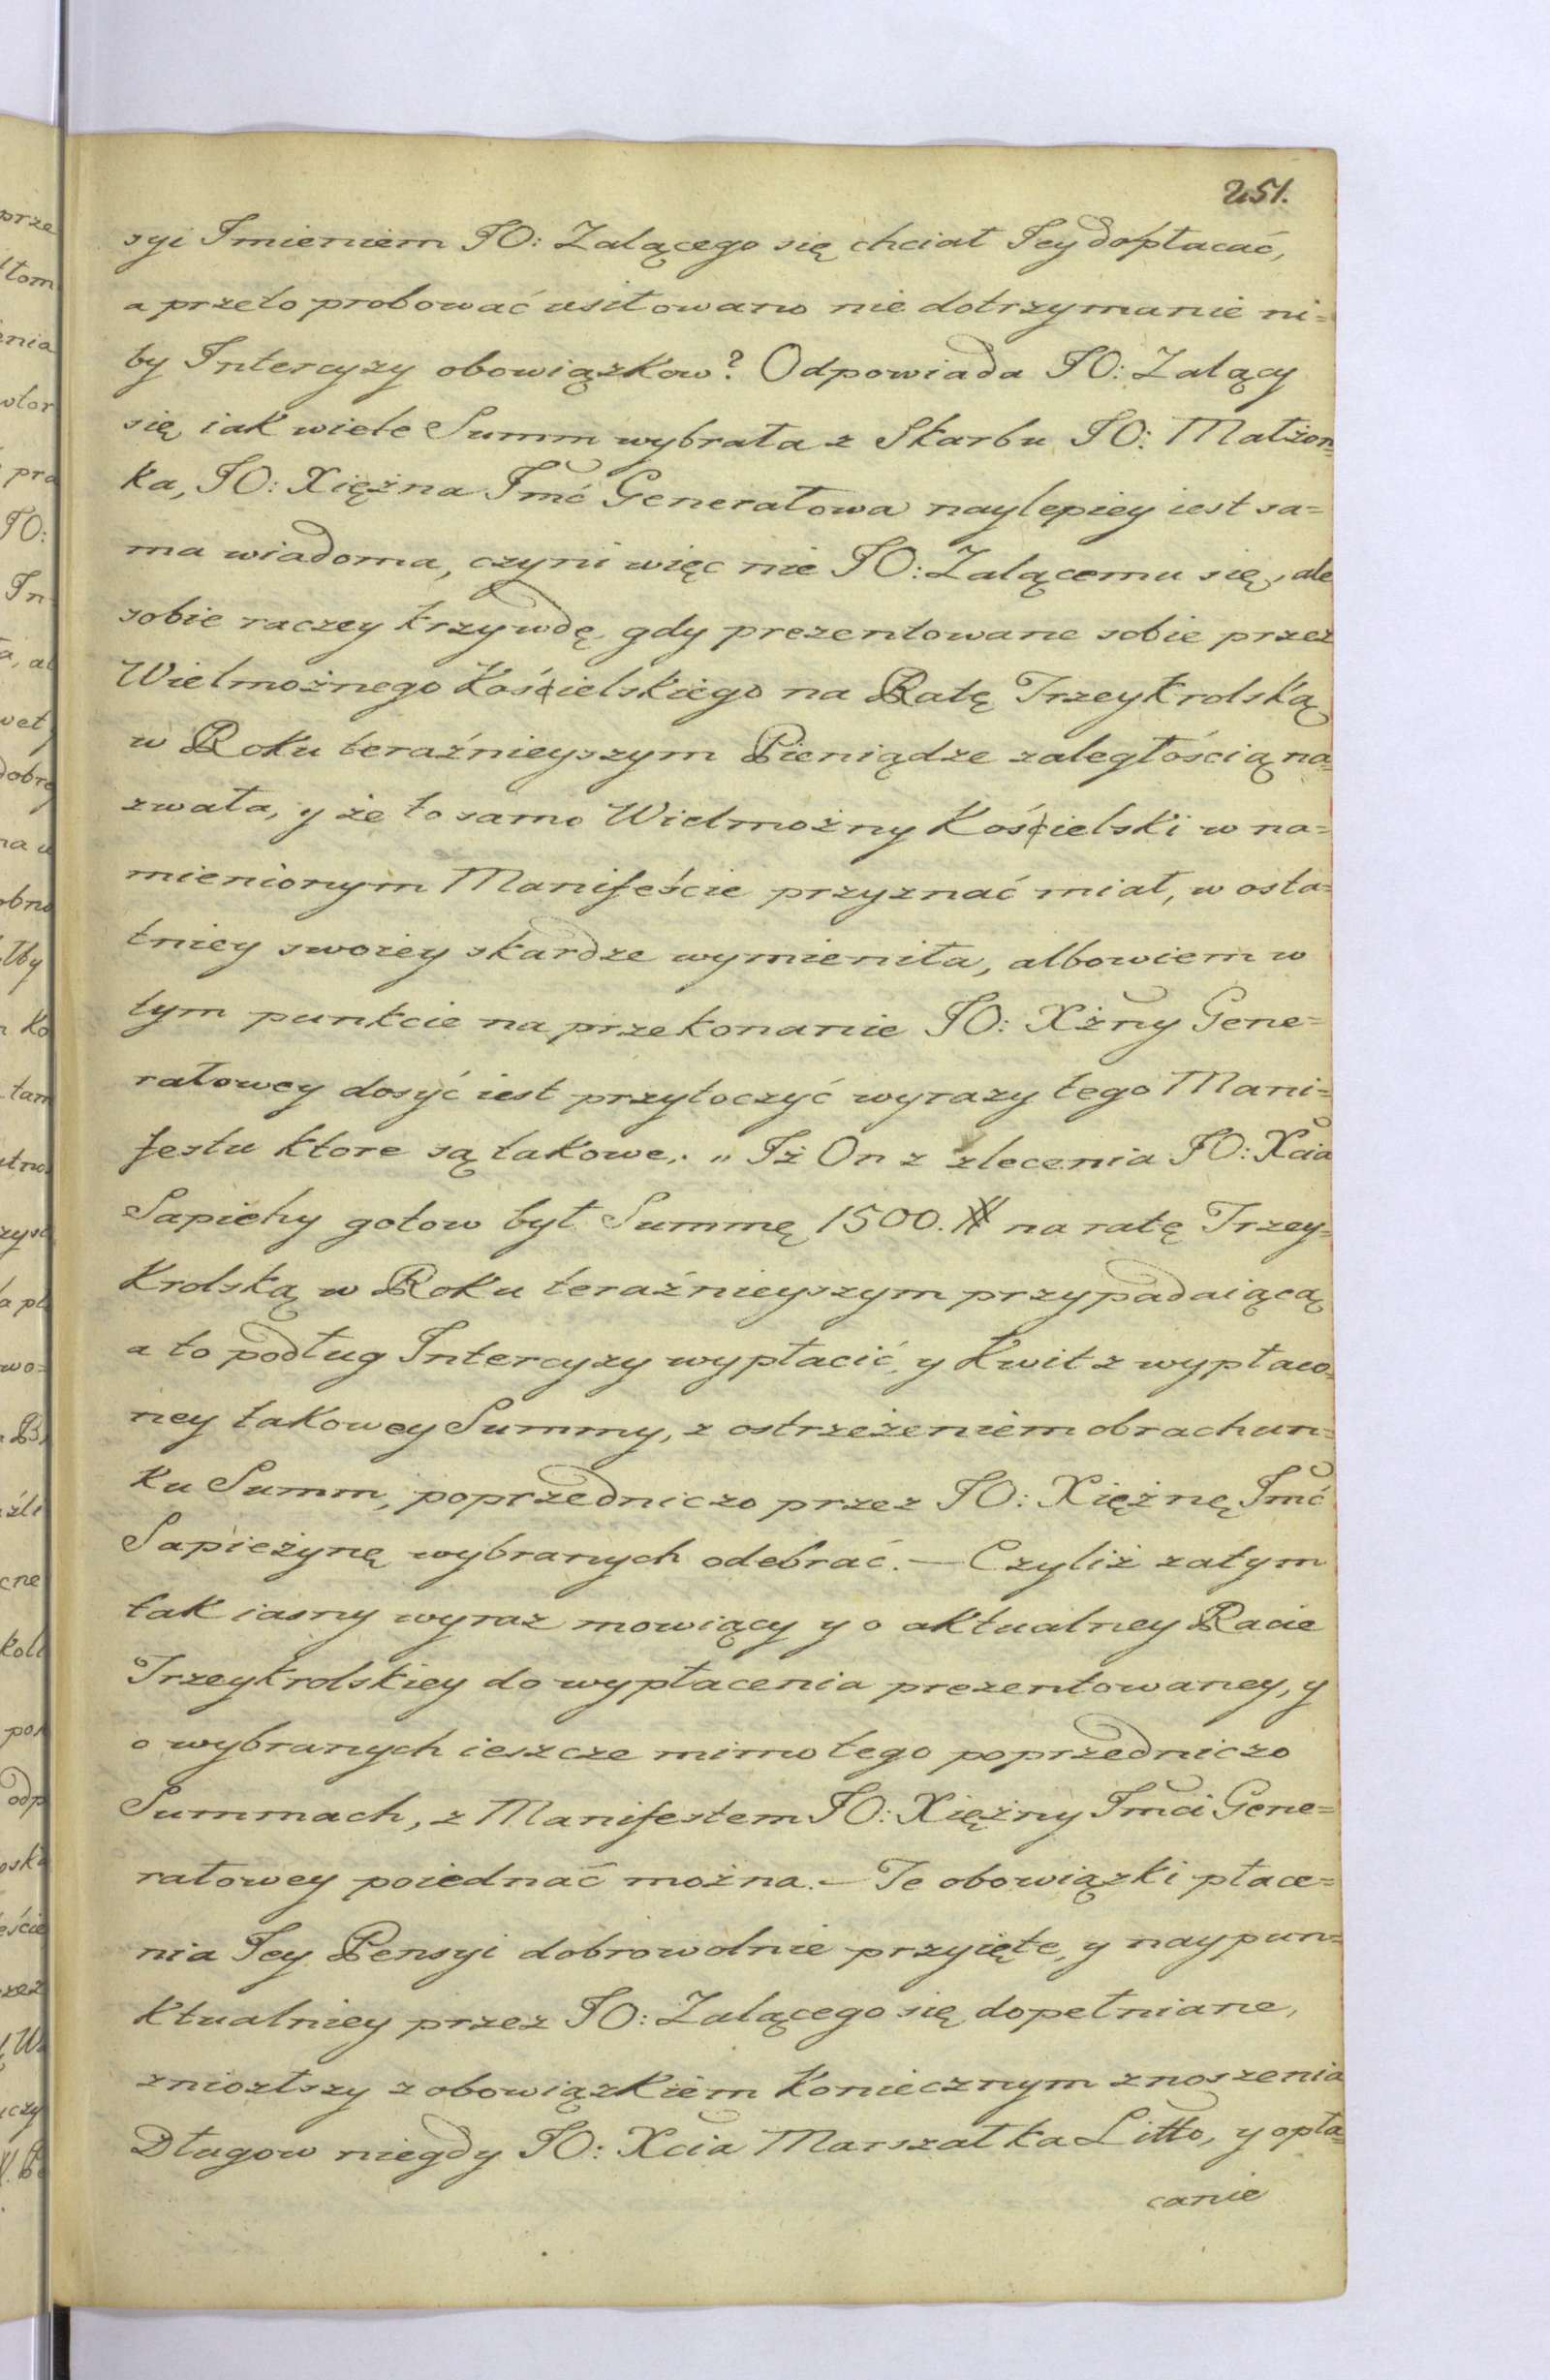 251.
syi Jmieniem JO: Żalącego się chciał Jey dopłacać,
a przeto probować usiłowano nie dotrzymanie ni=
by Intercyzy obowiązkow? Odpowiada JO: Żalący
się, iak wiele Summ wybrała z Skarbu JO: Małżon=
ka, JO: Xiężna Jmć Generałowa naylepiey iest sa=
ma wiadoma, czyni więc nie JO: Żalącemu się, ale
sobie raczey krzywdę, gdy prezentowane sobie przez
Wielmożnego Kościelskiego na Ratę Trzeykrolską
w Roku teraźnieyszym Pieniądze zaległością na=
zwała, y że to samo Wielmożny Kościelski w na=
mienionym Manifeście przyznać miał, w osta=
tniey swoiey skardze wymieniła, albowiem w
tym punkcie na przekonanie JO: Xżny Gene=
rałowey dosyć iest przytoczyć wyrazy tego Mani=
festu ktore są takowe: „ Iż On z zlecenia JO: Xcia
Sapiehy gotow był Summę 1500. # na ratę Trzey=
krolską w Roku teraźnieyszym przypadaiącą
a to podług Intercyzy wypłacić, y Kwit z wypłaco=
ney takowey Summy, z ostrzeżeniem obrachun=
ku Summ, poprzedniczo przez JO: Xiężnę Jmć
Sapieżynę wybranych odebrać. — Czyliż zatym
tak iasny wyraz mowiący y o aktualney Racie
Trzeykrolskiey do wypłacenia prezentowaney, y
o wybranych ieszcze mimo tego poprzedniczo
Summach, z Manifestem JO: Xiężny Jmci Gene=
rałowey poiednać można. — Te obowiązki płace=
nia Jey Pensyi dobrowolnie przyięte, y naypun=
ktualniey przez JO: Żalącego się dopełniane,
zniozłszy z obowiązkiem koniecznym znoszenia
Długow niegdy JO: Xcia Marszałka Litto, y opła=
canie